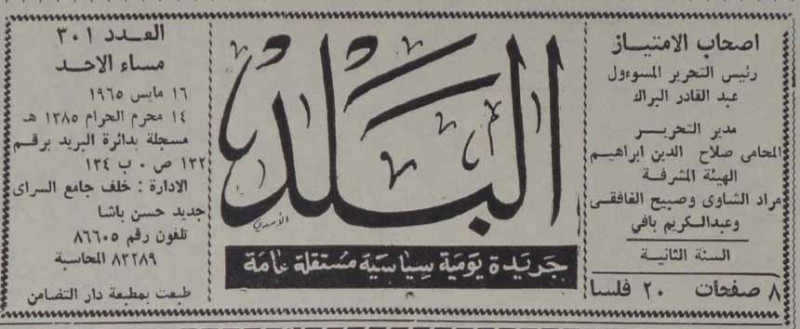 اصحاب الامتياز
رئيس التحرير المسوءول
عبد القادر البراك
مدير التحرير
المحامى صلاح الدين ابراهيم
الهيئة المشرفة
مراد الشاوى وصبيح الغافقى
وعبدالكريم بافي
السنة الثانية
٨ صفحات ٢٠ فلسا
البلد
الأسدي
جريدة يومية سياسية مستقلة عامة
العدد ٣٠١
مساء الاحد
١٦ مايس ١٩٦٥
١٤ محرم الحرام ١٣٨٥ هـ
مسجلة بدائرة البريد برقم
١٣٢ ص ٠ ب ١٣٤
الادارة : خلف جامع السراى
جديد حسن باشا
تلفون رقم ٨٦٦٠٥
٨٣٢٨٩ المحاسبة
طبعت بمطبعة دار التضامن